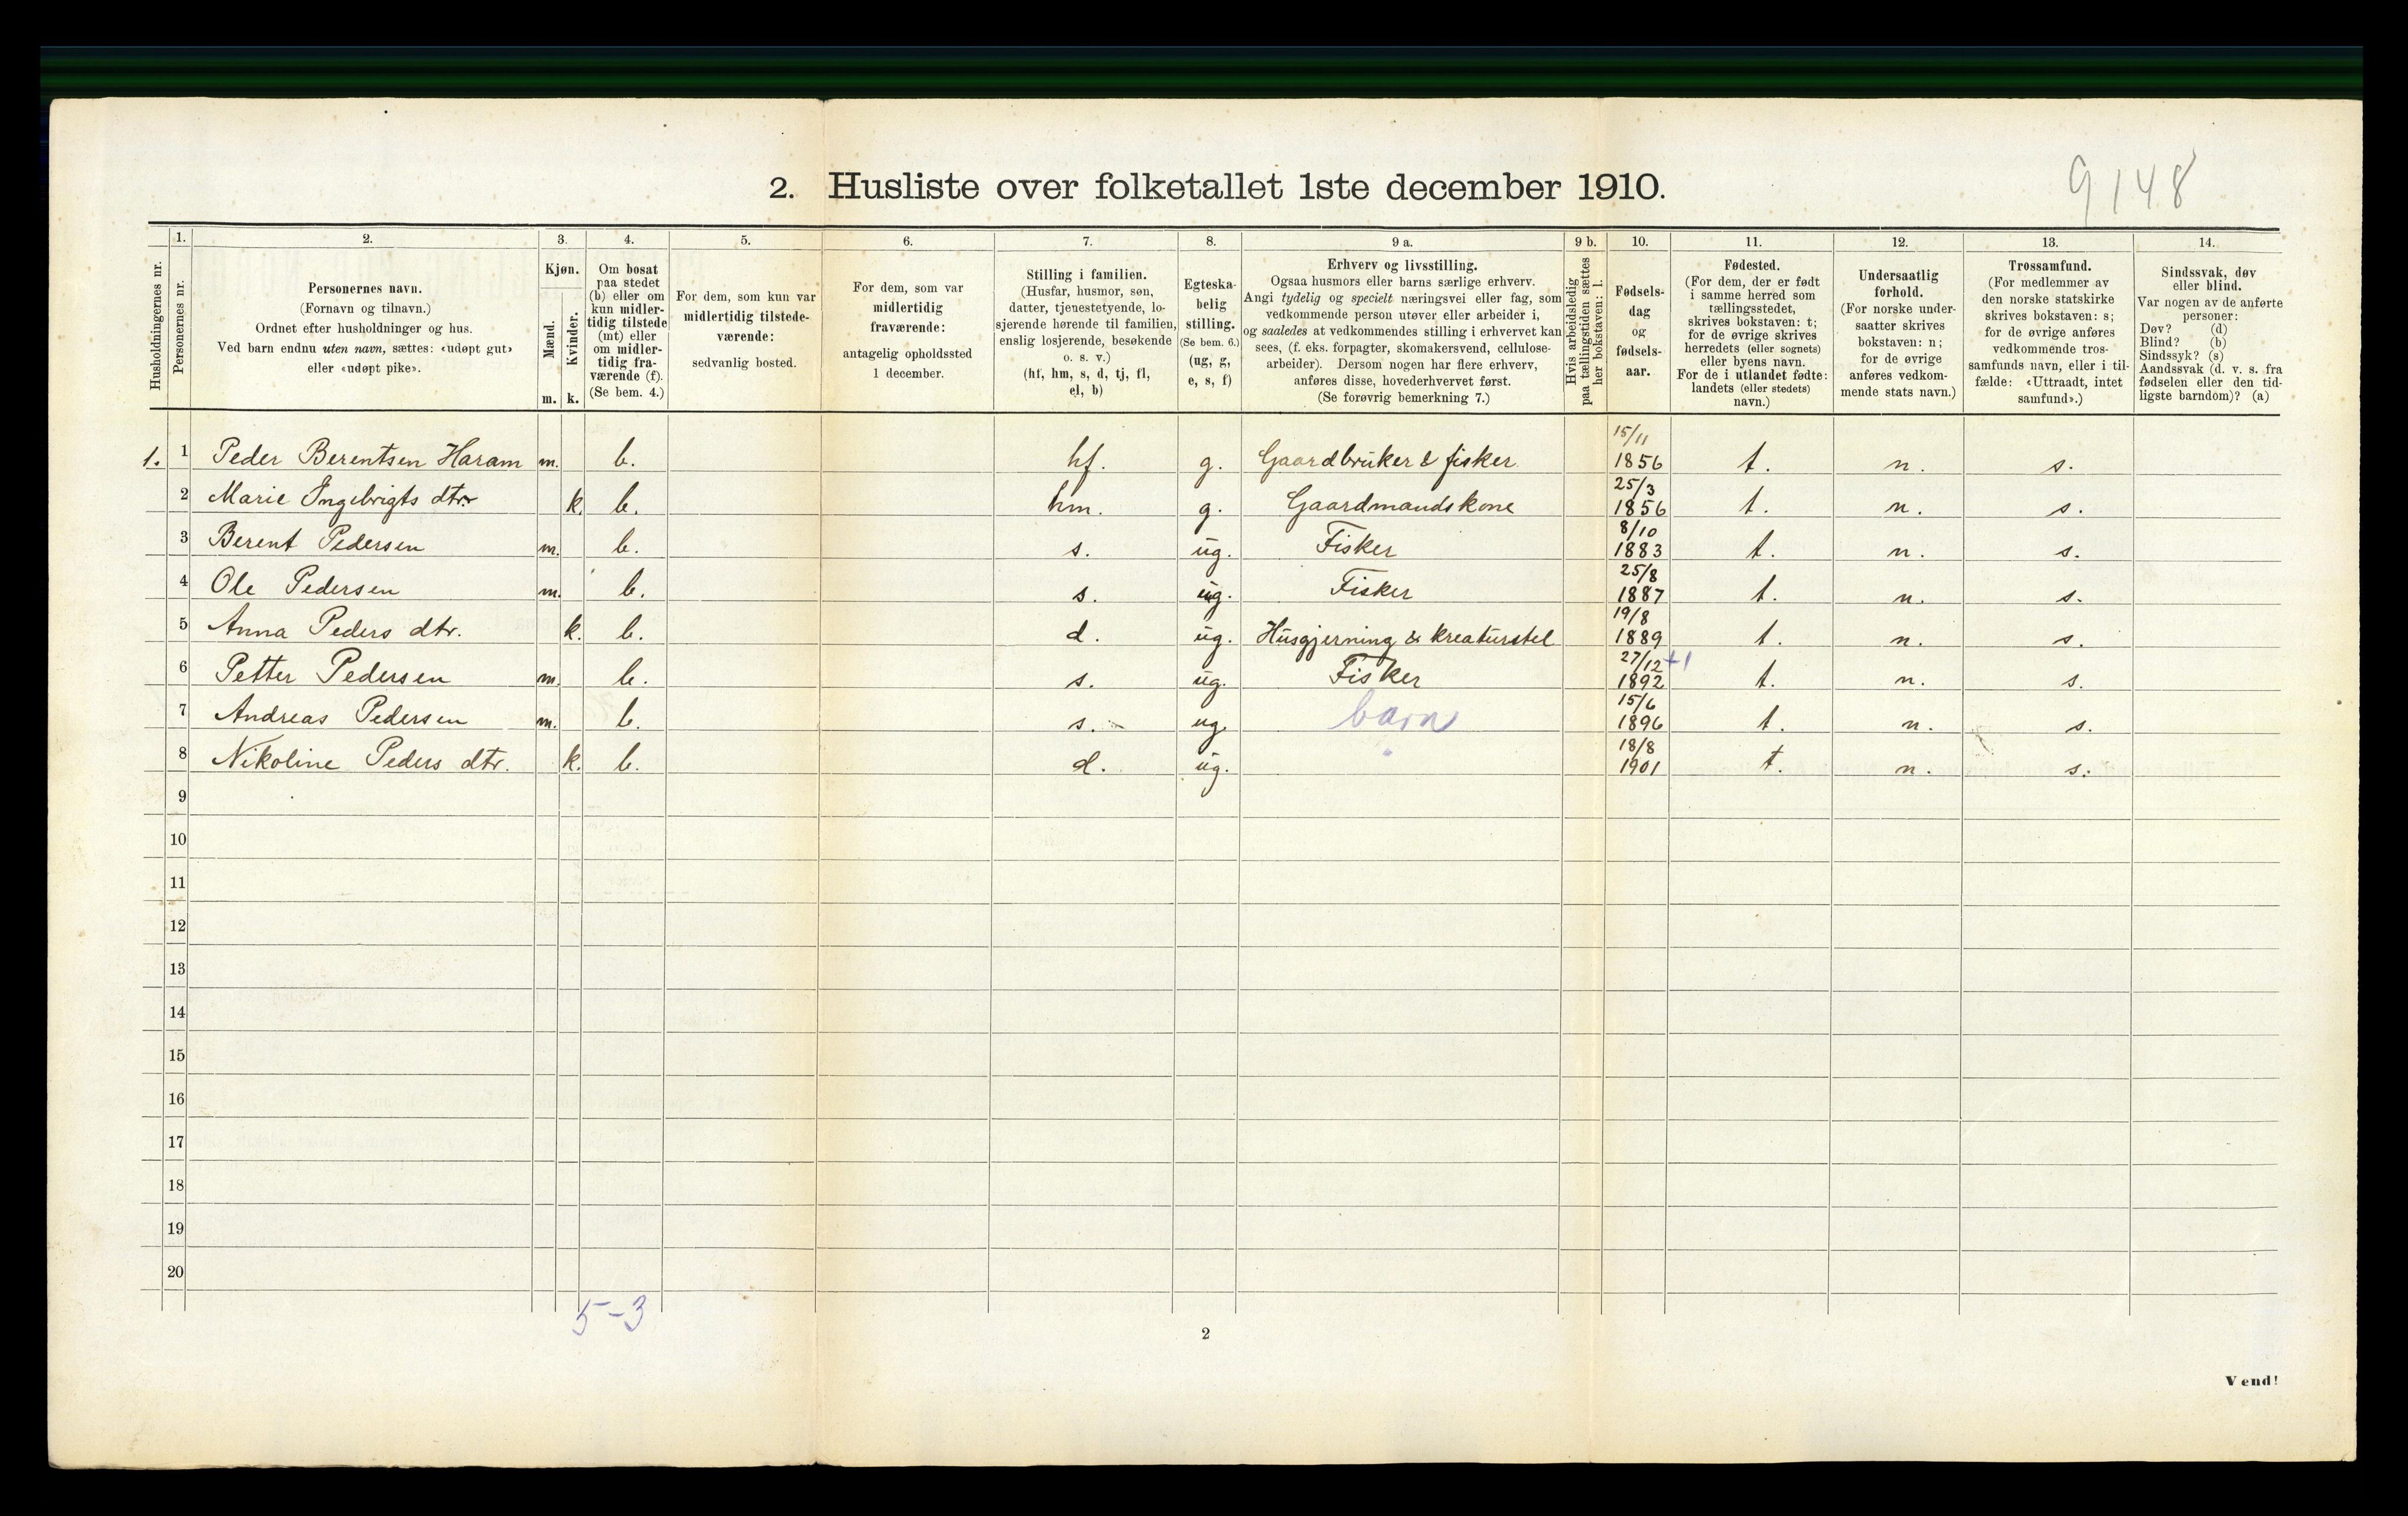 9148
2. Husliste over folketallet 1ste december 1910.
Husholdningernes nr.
1. Personernes nr.
2. Personernes navn.
(Fornavn og tilnavn.)
Ordnet efter husholdninger og hus.
Ved barn endnu uten navn, sættes: «udøpt gut»
eller «udøpt pike».
3. Kjøn.
Mænd. m.
Kvinder. k.
4. Om bosat
paa stedet
(b) eller om
kun midler-
tidig tilstede
(mt) eller
om midler-
tidig fra-
værende (f).
(Se bem. 4.)
5. For dem, som kun var
midlertidig tilstede-
værende:
sedvanlig bosted.
6. For dem, som var
midlertidig
fraværende:
antagelig opholdssted
1 december.
7. Stilling i familien.
(Husfar, husmor, søn,
datter, tjenestetyende, lo-
sjerende hørende til familien,
enslig losjerende, besøkende
o. s. v.)
(hf, hm, s, d, tj, fl,
el, b)
8. Egteska-
belig
stilling.
(Se bem. 6.)
(ug, g,
e, s, f)
9 a. Erhverv og livsstilling.
Ogsaa husmors eller barns særlige erhverv.
Angi tydelig og specielt næringsvei eller fag, som
vedkommende person utøver eller arbeider i,
og saaledes at vedkommendes stilling i erhvervet kan
sees, (f. eks. forpagter, skomakersvend, cellulose-
arbeider). Dersom nogen har flere erhverv,
anføres disse, hovederhvervet først.
(Se forøvrig bemerkning 7.)
9 b. Hvis arbeidsledig
paa tællingstiden sættes
her bokstaven: l.
10. Fødsels-
dag
og
fødsels-
aar.
11. Fødested.
(For dem, der er født
i samme herred som
tællingsstedet,
skrives bokstaven: t;
for de øvrige skrives
herredets (eller sognets)
eller byens navn.
For de i utlandet fødte:
landets (eller stedets)
navn.)
12. Undersaatlig
forhold.
(For norske under-
saatter skrives
bokstaven: n;
for de øvrige
anføres vedkom-
mende stats navn.)
13. Trossamfund.
(For medlemmer av
den norske statskirke
skrives bokstaven: s;
for de øvrige anføres
vedkommende tros-
samfunds navn, eller i til-
fælde: «Uttraadt, intet
samfund».)
14. Sindssvak, døv
eller blind.
Var nogen av de anførte
personer:
Døv? (d)
Blind? (b)
Sindssyk? (s)
Aandssvak (d. v. s. fra
fødselen eller den tid-
ligste barndom)? (a)
1. 1 Peder Berentsen Haram m. b. hf. g. Gaardbruker & fisker 15/11 1856 t. n. s.
2 Marie Ingebrigts dtr. k. b. hm. g. Gaardmandskone 25/3 1856 t. n. s.
3 Berent Pedersen m. b. s. ug. Fisker 8/10 1883 t. n. s.
4 Ole Pedersen m. b. s. ug. Fisker 25/8 1887 t. n. s.
5 Anna Peders dtr. k. b. d. ug. Husgjerning & kreaturstel 19/8 1889 t. n. s.
6 Petter Pedersen m. b. s. ug. Fisker 27/12 +1 1892 t. n. s.
7 Andreas Pedersen m. b. s. - ug. barn 15/6 1896 t. n. s.
8 Nikoline Peders dtr. k. b. d. ug. " 18/8 1901 t. n. s.
9
10
11
12
13
14
15
16
17
18
19
20
5-3
2
Vend!